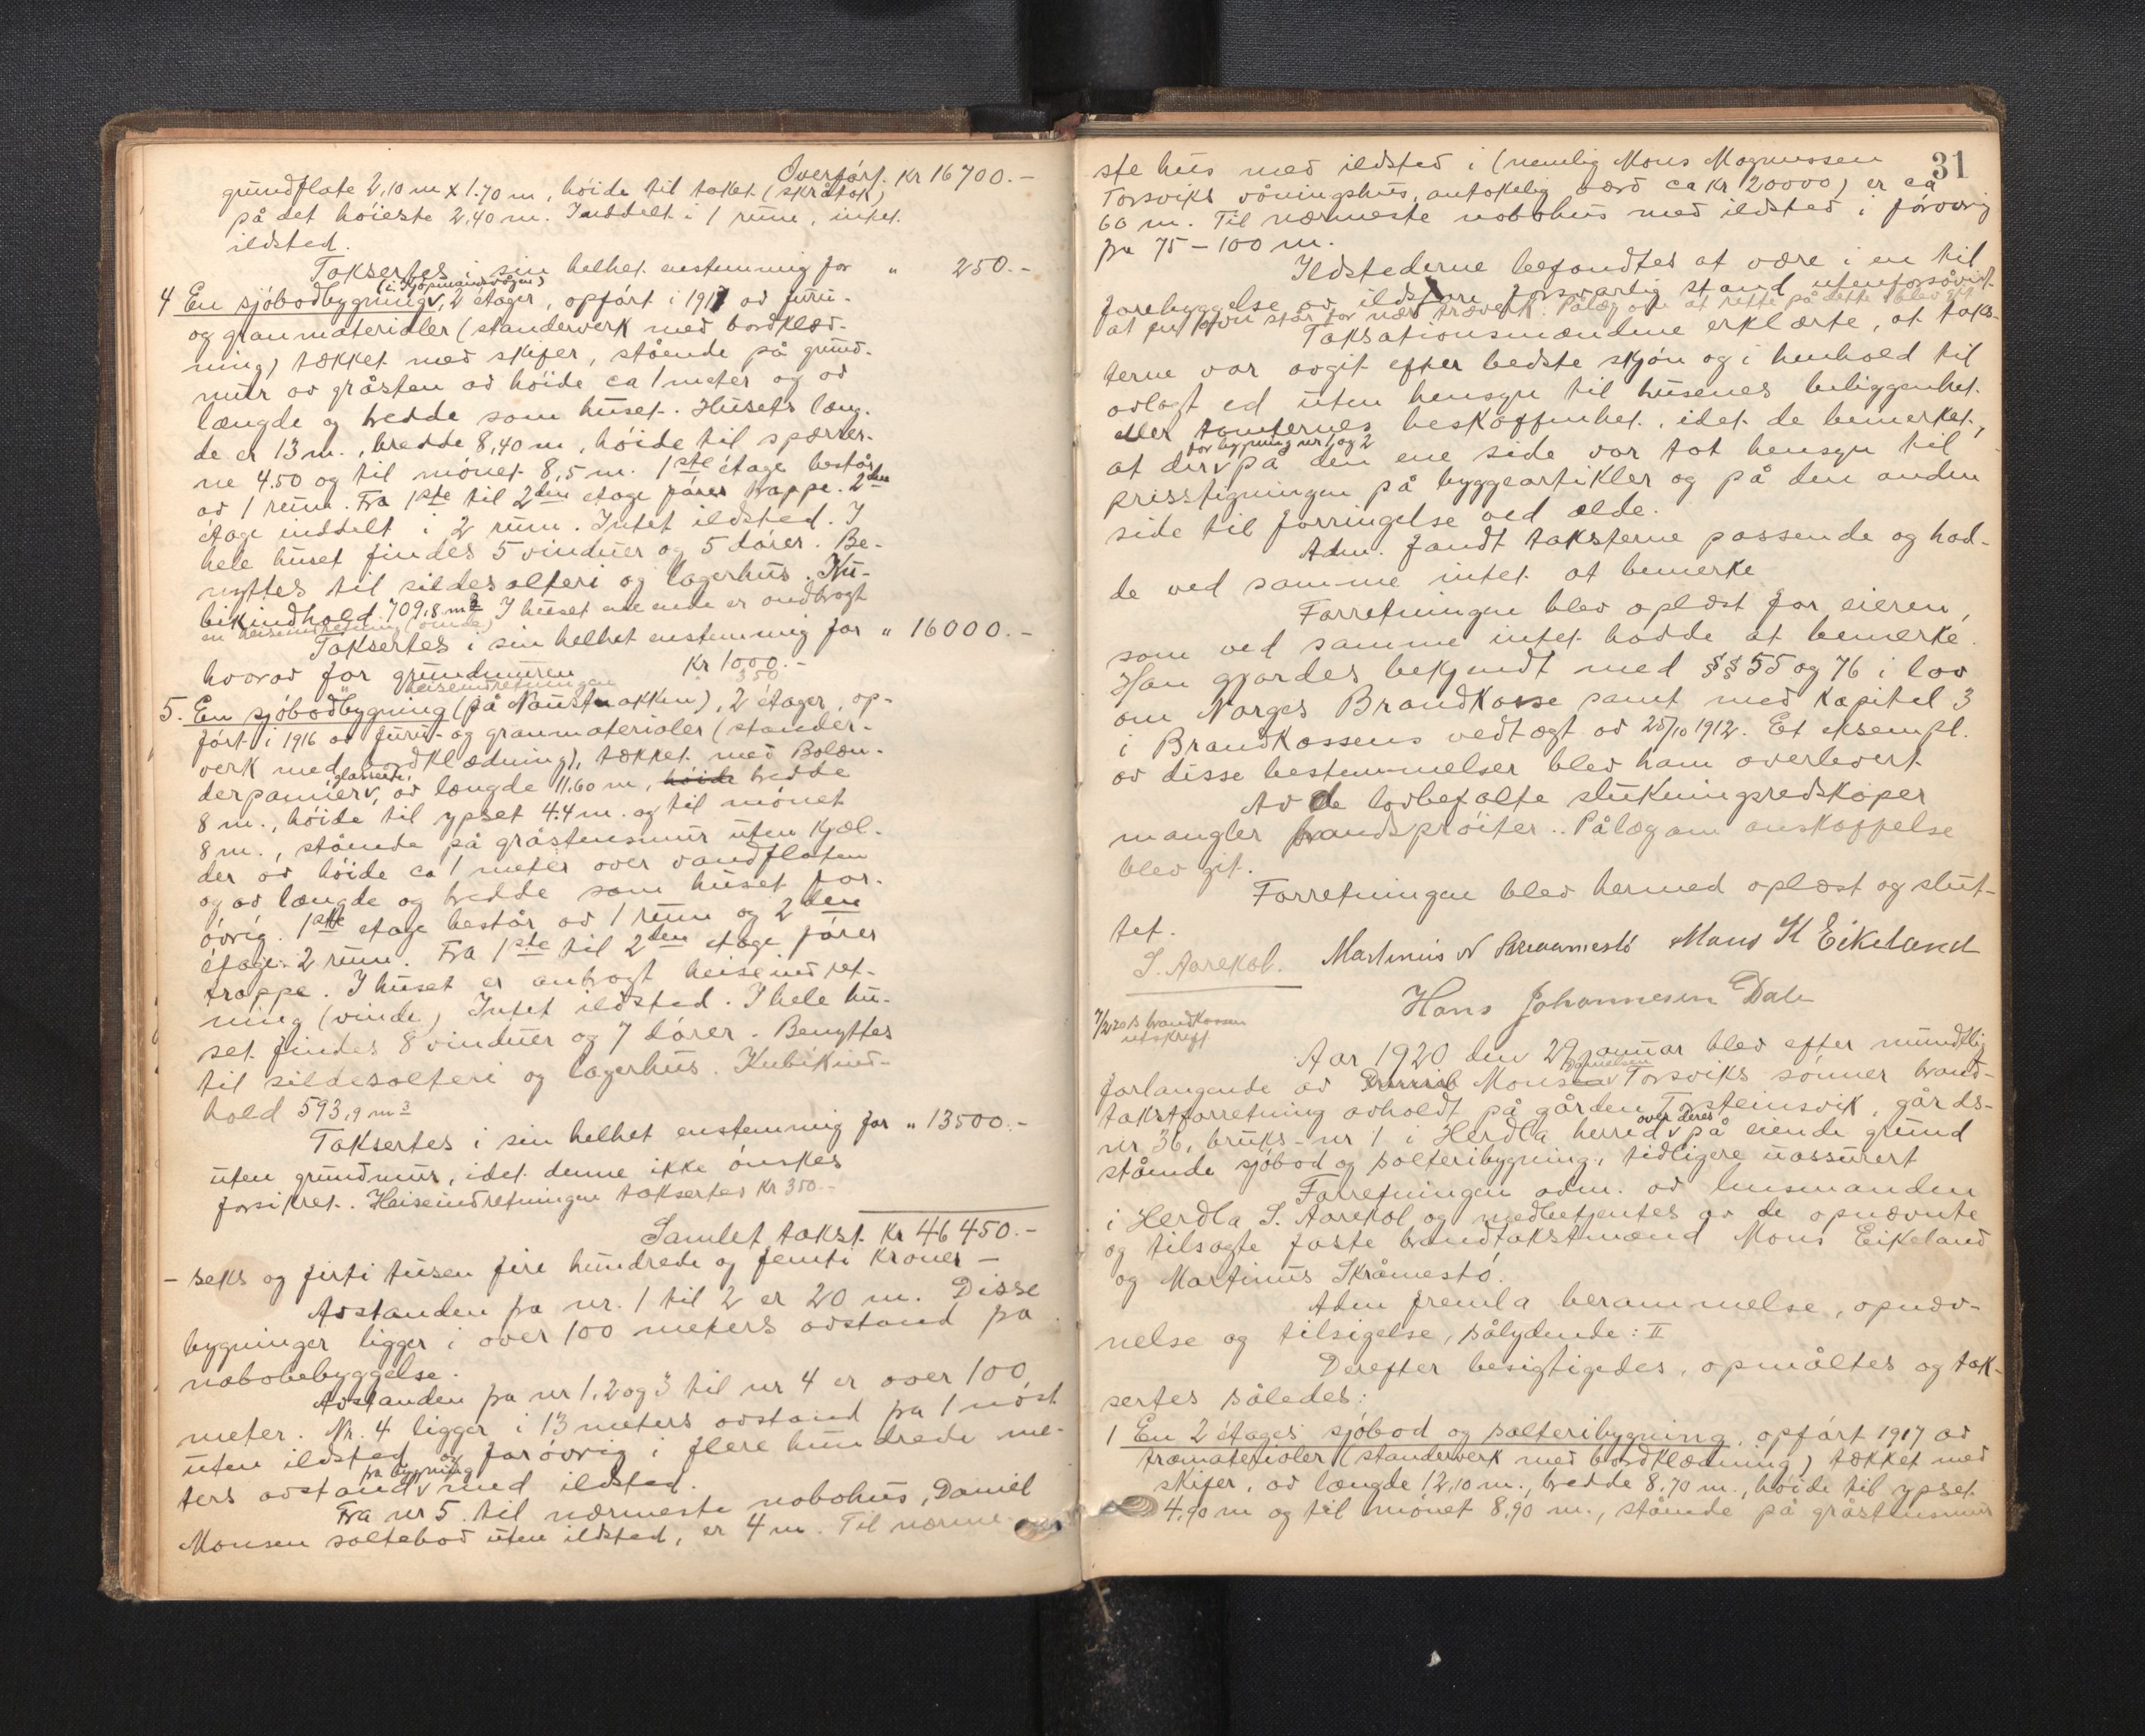 Overført. Kr 16700.-
grundflate 2,10 m x 1.70 m, høide til taket (skråtak)
på det høieste 2,40 m. Inddelt i 1 rum, intet
ildsted.
Taksertes i sin helhet enstemmig for " 250.-
(i Kjøpmannsvågen)
4 En sjøbodbygning v, 2 etager, opført i 1917 av furu-
og granmaterialer (standerverk med bordklæd-
ning) tækket med skifer, stående på grund-
mur av gråsten av høide ca 1 meter og av
længde og bredde som huset. Husets læng-
de er 13 m., bredde 8,40 m, høide til sperrer-
ne 4.50 og til mønet 8,5 m. 1ste etage består
av 1 rum. Fra 1ste til 2den etage fører trappe. 2den
etage inddelt i 2 rum. Intet ildsted. I
hele huset findes 5 vinduer og 5 dører. Be-
nyttes til sildesalteri og lagerhus. Ku-
bikindhold 709,8 m3 I huset ene ende er andbragt
en heiseindretning (vinde)
Taksertes i sin helhet enstemmig for " 16000.-
hvorav for grundmuren Kr 1000.-
" heiseindretningen 350
5. En sjøbodbygning (på Naustnakken), 2 etager, op-
ført i 1916 av furu- og granmaterialer (stander-
verk med bordklædning), tækket med Bolæn-
glasserte,
derpanner v, av længde 11,60 m, høide bredde
8 m., høide til ypset 4.4 m. og til mønet
8 m., stående på gråstensmur uten kjæl-
der av høide ca 1 meter over vandflaten
og av længde og bredde som huset for-
øvrig. 1ste etage består av 1 rum og 2den
etage 2 rum. Fra 1ste til 2den etage fører
trappe. I huset er anbragt heiseindret-
ning (vinde) Intet ildsted. I hele hu-
set findes 8 vinduer og 7 dører. Benyttes
til sildesalteri og lagerhus. Kubikind-
hold 593,9 m3
Taksertes i sin helhet enstemmig for " 13500.-
uten grundmur, idet denne ikke ønskes
forsikret. Heiseindretningen taksertes Kr 350.-
Samlet takst Kr 46450.-
- seks og firti tusen fire hundrede og femti kroner -
Avstanden fra nr. 1 til 2 er 20 m. Disse
bygninger ligger i over 100 meters avstand fra
nabobebyggelse.
Avstanden fra nr 1, 2 og 3 til nr 4 er over 100
meter. Nr. 4 ligger i 13 meters avstand fra 1 nøst
uten ildsted og forøvrig i flere hundrede me-
fra bygning
ters avstand v med ildsted.
Fra nr 5 til nærmeste nabohus, Daniel
Monsen saltebod uten ildsted, er 4 m. Til nærme-
31
ste hus med ildsted i (nemlig Mons Magnussen
Torsviks våningshus, antakelig værd ca kr 20000) er ca
60 m. Til nærmeste nabohus med ildsted i forøvrig
fra 75 - 100 m.
Ildstederne befandtes at være i en til
forebyggelse av ildsfare forsvarlig stand utenforsåvidt
at en står for nær træverk. Pålæg om at rette på dette blev git
Taksationsmændene erklærte, at taks-
terne var avgit efter bedste skjøn og i henhold til
avlagt ed uten hensyn til husenes beliggenhet
eller tomternes beskaffenhet, idet de bemerket,
for bygning nr 1 og 2
at der v på den ene side var tat hensyn til
prisstigningen på byggeartikler og på den anden
side til forringelse ved ælde.
Adm. fandt taksterne passende og had-
de ved samme intet at bemerke
Forretningen blev oplæst for eieren,
som ved samme intet hadde at bemerke.
Han gjordes bekjendt med §§ 55 og 76 i lov
om Norges Brandkasse samt med Kapitel 3
i Brandkassens vedtægt av 25/10 1912. Et eksempl.
av disse bestemmelser blev ham overlevert
Av de lovbefalte slukningsredskaper
mangler brandsprøiter. Pålæg om anskaffelse
blev git.
Forretningen blev hermed oplæst og slut-
tet.
S. Aarekol. Martinus N Skraamestø Mons H Eikeland
Hans Johannesen Dale
7/2 20 brandkassen
utskrift
Aar 1920 den 29 januar blev efter mundtlig
forlangende av Mons Torsviks sønner brand-
takstforretning avholdt på gården Torsteinsvik, gårds-
over deres
nr 36, bruks-nr 1 i Herdla herred v på eiende grund
stående sjøbod og salteribygning, tidligere uassurert
Forretningen adm. av lensmanden
i Herdla S. Aarekol og medbetjentes av de opnævnte
og tilsagte faste brandtakstmænd Mons Eikeland
og Martinus Skråmestø.
Adm fremla berammelse, opnæv-
nelse og tilsigelse, sålydende: II
Derefter besigtigedes, opmåltes og tak-
sertes således:
1 En 2 etages sjøbod og salteribygning, opført 1917 av
træmaterialer (standerverk med bordklædning) tækket med
skifer, av længde 12,10 m., bredde 8.70 m., høide til ypset
4,90 m og til mønet 8,90 m., stående på gråstensmur